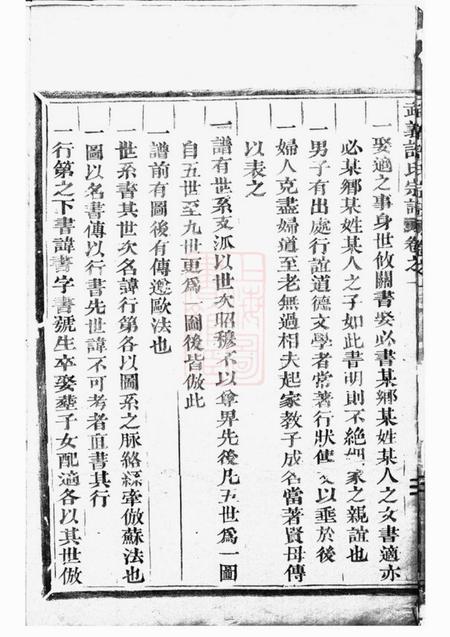 一娶適之事身世攸關書娶必書某鄉某姓某人之女書適亦
必某鄉某姓某人之子如此書明則不絕姻家之親誼也
一男子有出處行誼道德文學者當著行狀使以垂於後
一婦人克盡婦道至老無過相夫起家教子成名當著賢母傳
以表之
一譜有世系支派以世次昭穆不以尊卑先後凡五世為一圖
自五世至九世更為一圖後皆倣此
一譜前有圖後有傳遵歐法也
一世系書其世次名諱行第各以圖系之脉絡繇牽倣蘇法也
一圖以名書傳以行書先世諱不可考者直書其行
一行第之下書諱書字書號生卒娶塟子女配適各以其世倣